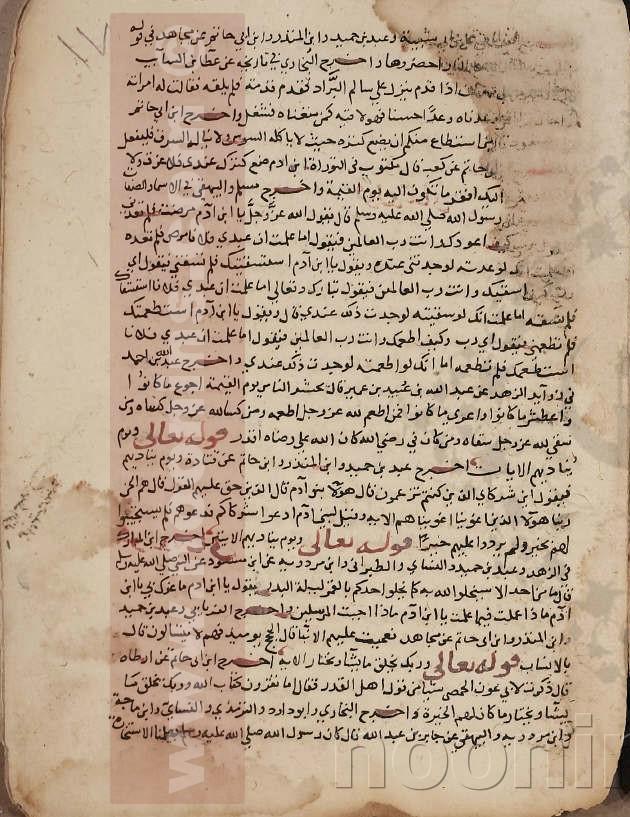 شيبة وعبد بن حميد وابن المنذر وابن ابي حاتم عن مجاهد في قوله
من المحضرين قال احضروها واخرج البخاري في تاريخه عن عطا بن السايب
اذا قدم نزل علي سالم البراد فقدم قدمة فلم يلقه فقالت له امراته
وعدا حسنا فهو لاقيه كمن متعناه واخرج ابن ابي حاتم
ان استطاع منكم ان يضع كنزه حيث لا ياكله السوس ولا يناله السرق فليفعل
ابي حاتم عن كعب قال مكتوب في التوراة ابن ادم ضع كنزك عندي فلا غرق ولا
اليك افقر ما تكون اليه يوم القيمة واخرج مسلم والبيهقي في الاسما والصفات
رسول الله صلي الله عليه وسلم قال يقول الله عز وجل يا ابن ادم مرضت فلم تعدني
كيف اعودك وانت رب العالمين فيقول اما علمت ان عبدي فلانا مرض فلم تعده
انك لو عدته لوجدتني عنده ويقول يا ابن ادم استسقيتك فلم تسقني فيقول اي
رب كيف اسقيك وانت رب العالمين فيقول تبارك وتعالي اما علمت ان عبدي فلانا استسقاك
فلم تسقه اما علمت انك لو سقيته لوجدت ذلك عندي قال ويقول يا ابن ادم استطعمتك
فلم تطعمني فيقول اي رب وكيف اطعمك وانت رب العالمين فيقول اما علمت ان عبدي فلانا
استطعمك فلم تطعمه اما انك لو اطعمته لوجدت ذلك عندي واخرج عبد الله بن احمد
في زوايد الزهد عن عبد الله بن عبيد بن عمير قال يحشر الناس يوم القيمة اجوع ما كانوا
واعطش ما كانوا واعري ما كانوا فمن اطعم لله عز وجل اطعمه ومن كسا لله عز وجل كساه ومن
سقي لله عز وجل سقاه ومن كان في رضي الله كان الله علي رضاه اقدر قوله تعالي ويوم
يناديهم الايات اخرج عبد بن حميد وابن المنذر وابن ابي حاتم عن قتادة ويوم يناديهم
فيقول اين شركاي الذين كنتم تزعمون قال هولا بنو ادم قال الذين حق عليهم القول قال هم الجن
ربنا هولا الذين اغوينا اغويناهم الاية وقيل لبني ادم ادعوا شركاكم فدعوهم فلم يستجيبوا
لهم بخير ولم يردوا عليهم خيرا قوله تعالي ويوم يناديهم الايتين اخرج ابن المبارك
في الزهد وعبد بن حميد والنساي والطبراني وابن مردويه عن ابن مسعود عن النبي صلي الله عليه وسلم
قال ما من احد الا سيخلوا الله به كما يخلوا احدكم بالقمر ليلة البدر فيقول يا ابن ادم ما غرك بي يا ابن
ادم ماذا عملت فيما علمت يا ابن ادم ماذا اجبت المرسلين واخرج الفريابي وعبد بن حميد
وابن المنذر وابن ابي حاتم عن مجاهد فعميت عليهم الانبا قال الحجج يوميذ فهم لا يتسالون قال
بالانساب قوله تعالي وربك يخلق ما يشا ويختار الاية اخرج ابن ابي حاتم عن ارطاة
قال ذكرت لابي عون الحمصي شيا من قول اهل القدر فقال اما تقرون كتاب الله وربك يخلق ما
يشا ويختار ما كان لهم الخيرة واخرج البخاري وابو داود والترمذي والنساي وابن ماجة
وابن مردويه والبيهقي عن جابر بن عبد الله قال كان رسول الله صلي الله عليه وسلم يعلمنا الاستخارة
noonin